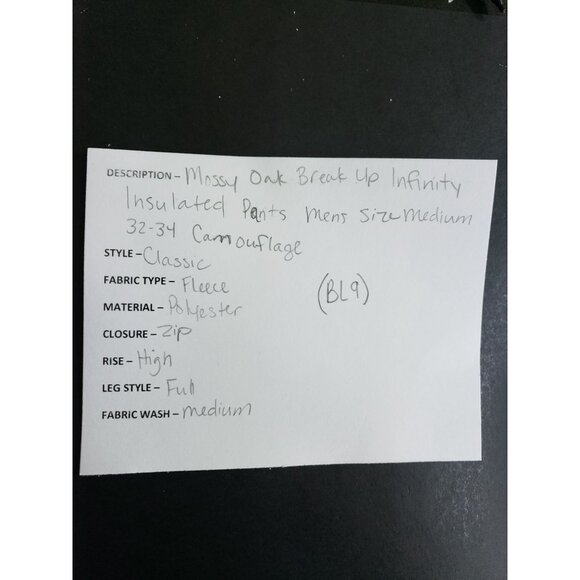 DESCRIPTION – Mossy Oak Break Up Infinity
Insulated Pants Mens Size Medium
32-34 Camouflage
STYLE – Classic
FABRIC TYPE – Fleece
(BL9)
MATERIAL – Polyester
CLOSURE – Zip
RISE – High
LEG STYLE – Full
FABRIC WASH – medium